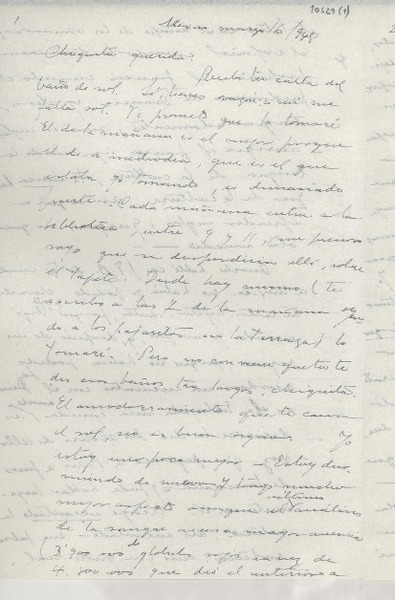 10629 (1)
1
Mexico marzo 16/949
Chiquita querida:
Recibí tu carta del
baño de sol. Sí, tienes razón: a mí me
falta sol. Te prometo que lo tomaré
El de la mañana es el mejor porque
el de a mediodía, que es el que
estaba yo tomando, es demasiado
fuerte. Cada mañana entra a la
biblioteca, entre 9 y 11, un precioso
rayo que se desperdicia allí, sobre
el tapete. Desde hoy mismo (te
escribo a las 7 de la mañana oyen
do a los pajaritos en la terraza) lo
tomaré. Pero no conviene que tú te
des esos baños tan largos, chiquita.
El amodorramiento que te causa
el sol no es buen signo. Yo
estoy un poco mejor. Estoy dur
miendo de nuevo y tengo mucho
mejor aspecto aunque el último análisis
de la sangre acusa mayor anemia
(3'900.000 de glóbulos rojos en vez de
4.300.000 que dió el anterior a